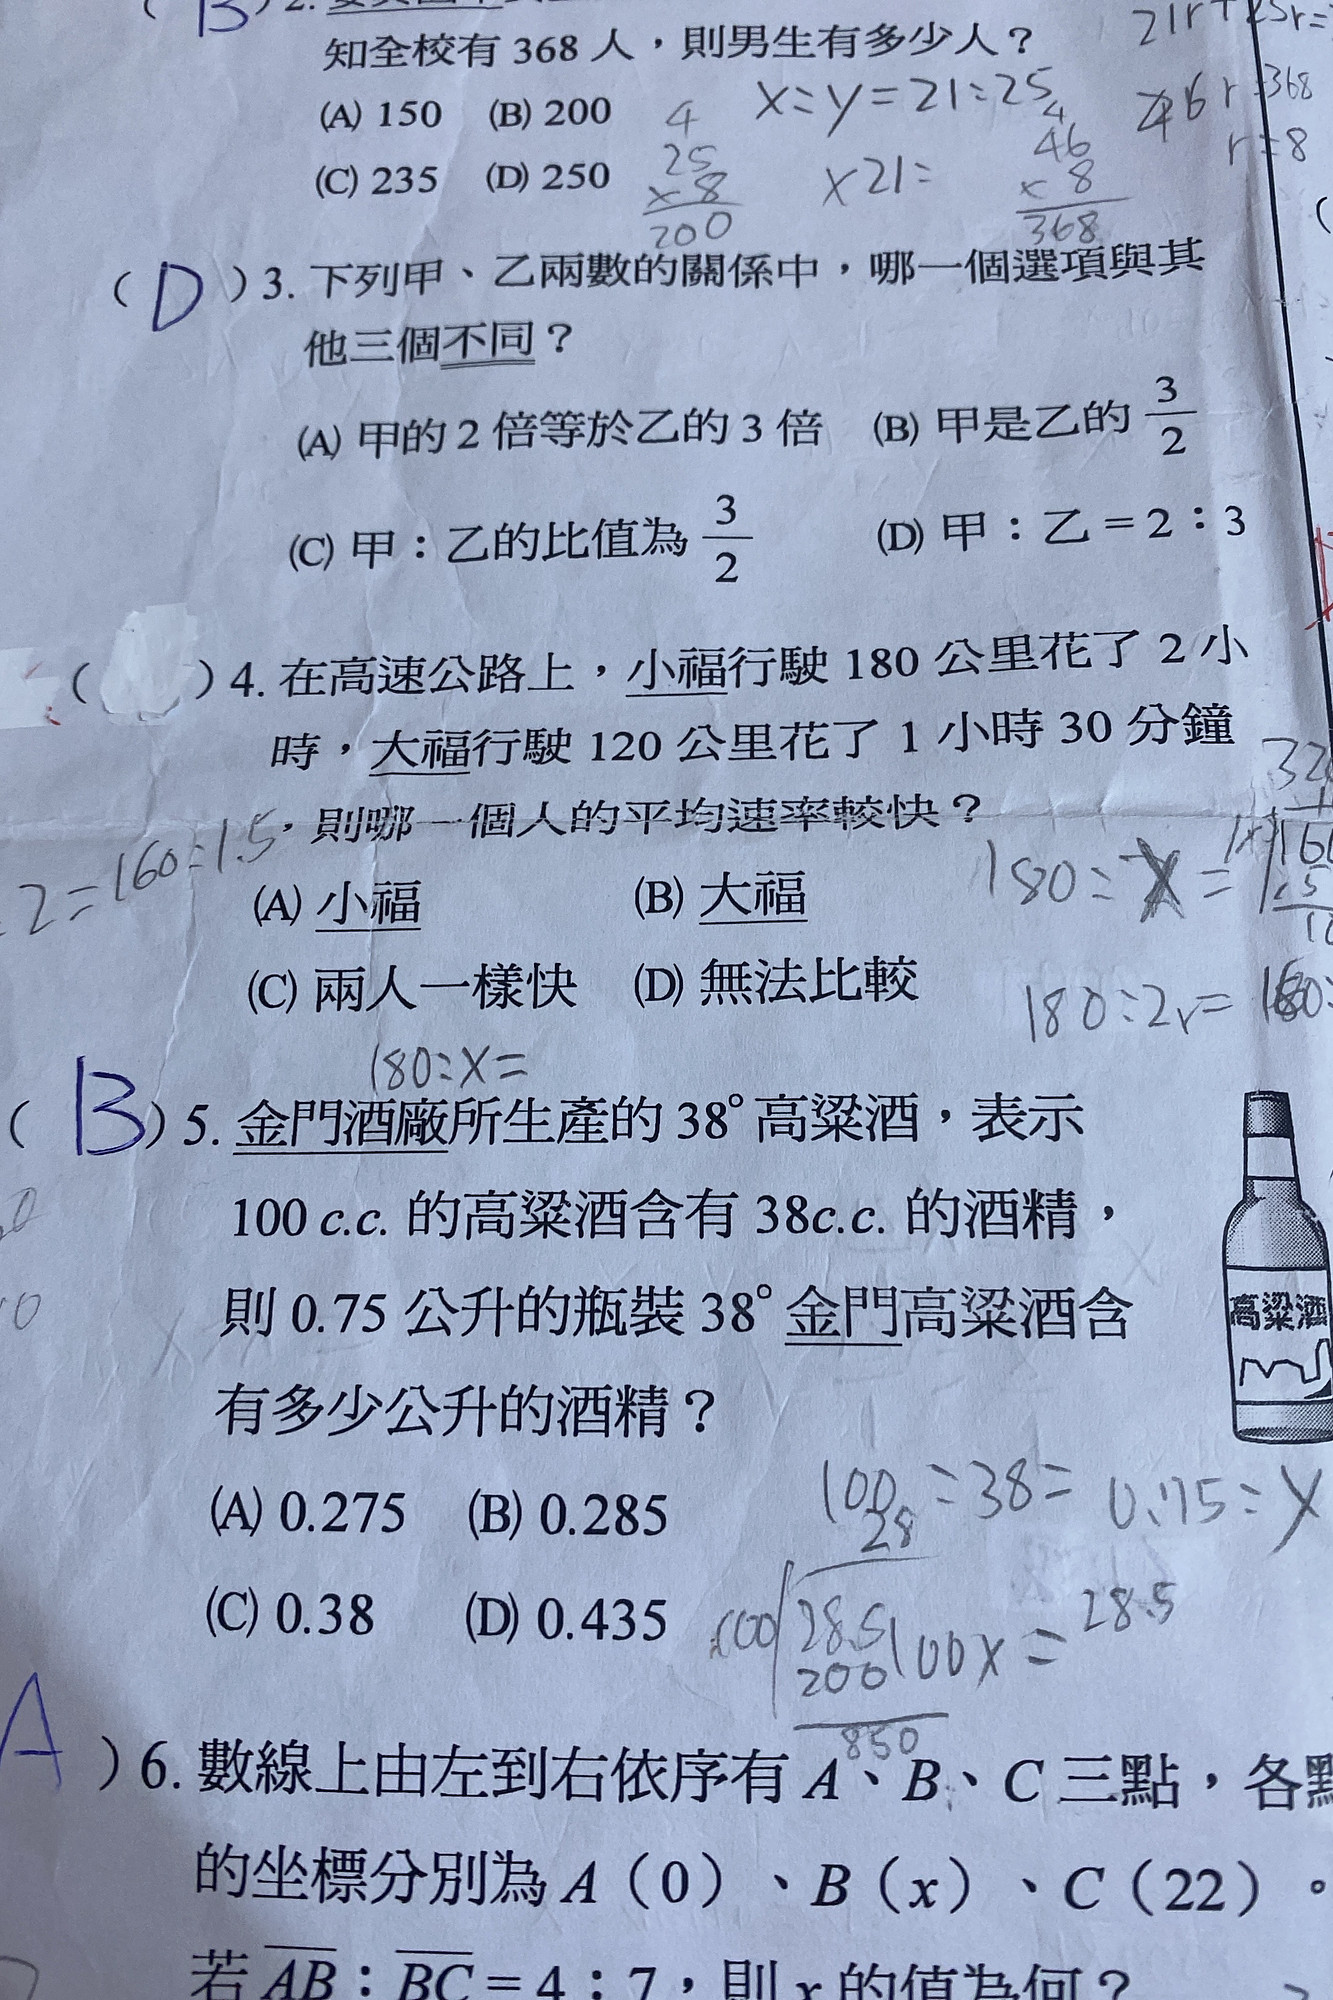 (B)2.
知全校有 368 人，則男生有多少人？
(A) 150 (B) 200
(C) 235 (D) 250
21r+25r=
x:y=21:25
46r=368
r=8
x21=
4
25
×8
200
4
46
×8
368
(D)3. 下列甲、乙兩數的關係中，哪一個選項與其
他三個不同？
(A) 甲的 2 倍等於乙的 3 倍 (B) 甲是乙的 3/2
(C) 甲：乙的比值為 3/2 (D) 甲：乙＝2：3
( )4. 在高速公路上，小福行駛 180 公里花了 2 小
時，大福行駛 120 公里花了 1 小時 30 分鐘
，則哪一個人的平均速率較快？
2=160:1.5
180:X=
(A) 小福 (B) 大福
(C) 兩人一樣快 (D) 無法比較
180:2r=160:
180:X=
(B)5. 金門酒廠所生產的 38°高粱酒，表示
100 c.c. 的高粱酒含有 38c.c. 的酒精，
則 0.75 公升的瓶裝 38°金門高粱酒含
有多少公升的酒精？
高粱酒
(A) 0.275 (B) 0.285
(C) 0.38 (D) 0.435
100:38=0.75:X
28
100
28.5
200
850
100x=28.5
A)6. 數線上由左到右依序有 A、B、C 三點，各點
的坐標分別為 A（0）、B（x）、C（22）。
若 AB：BC＝4：7，則 x 的值為何？